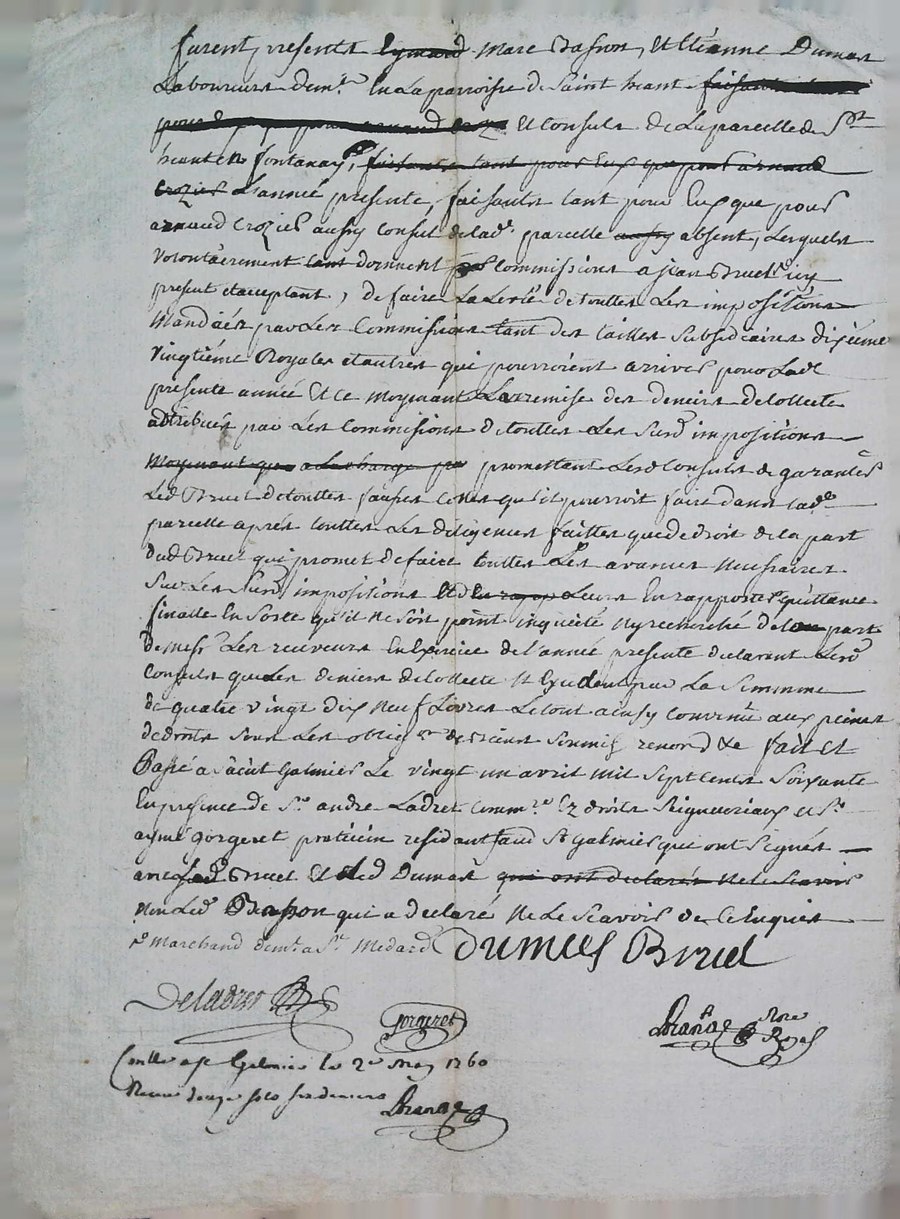 furent presents Eymard Marc Basson, Et Etienne Dumas
Laboureurs dem.t En La parroisse de Saint heant faisants
pour Et Consuls de La parcelle de St
heant en fontanay, faisants tant pour Eux que pour arnaud
Crozier L'année presente, faisants tant pour Eux que pour
arnaud Crozier aussy Consul de lad. parcelle aussy absent, Lesquels
volontairement tant donnent Commissions a jean Bruel icy
present et acceptant, de faire La Levée de touttes Les impositions
Mandées par Les Commissions tant des tailles Subsidiaires dixieme
vingtième Royales et autres qui pourroient arriver pour Lad.
presente année Et Ce Moyenant La remise des deniers de Collecte
attribués par Les Commissions de touttes Les Susd. impositions
Moyenant que a La charge promettent Lesd. Consuls de garantir
Led. Bruel de touttes fausses Cottes qu'il pourroit faire dans Lad.
parcelle aprés touttes Les diligences faittes que de droit de la part
dud. Bruel qui promet de faire touttes Les avances Necessaires
Sur Les Susd. impositions Et d'En Leurs En rapporter quittance
finalle En Sorte qu'il ne Soit point inquieté Ny recherché de La part
de Mess.rs Les receveurs En Exercice de L'année presente declarent Lesd.
Consuls que Les deniers de Collecte N'Excedent pas La Somme
de quatre vingt dix Neuf Livres Le tout ainsy Convenu aux peines
de droits Sous Les oblig.ons de biens Soumis renon.d &c fait et
Passé a Saint Galmier Le vingt un avril mil Sept Cents Soixante
En presence de S.r andré Ladret Comm.re Ez droits Seigneuriaux et S.r
aymé gorgeret praticien residant aud. St Galmier qui ont Signés
avec Led. Bruel Et Led. Dumas qui ont declarés Ne Le Scavoir
Non Led. Basson qui a declaré Ne Le Scavoir de Ce Enquis
Marchand dem.t a St. Medard Dumas Bruel
Deladret
Gorgeret
Nore
Royal
Con.lle a St Galmier le 2e May 1760
Recu douze sols six deniers